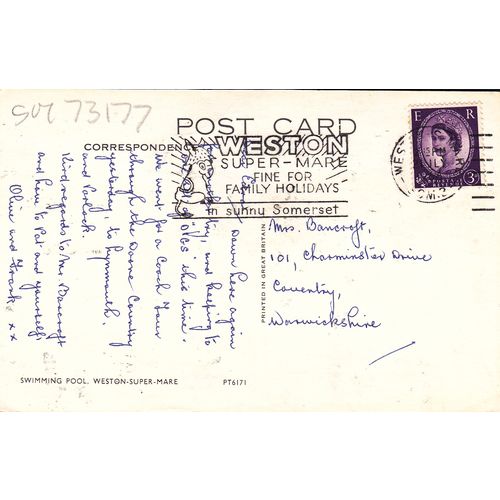 SOM 73177
POST CARD
CORRESPONDENCE
WESTON
SUPER-MARE
FINE FOR
FAMILY HOLIDAYS
in sunny Somerset
E R
3D
WES
Down here again
and keeping to
this time.
We went for a coach tour
through the Doone Country
yesterday, to Lynmouth
and Porlock.
Kind regards to Mr Bancroft
and love to Pat and yourself
Olive and Frank x x
PRINTED IN GREAT BRITAIN
Mrs. Bancroft,
101, Charminster Drive
Coventry,
Warwickshire
SWIMMING POOL, WESTON-SUPER-MARE
PT6171